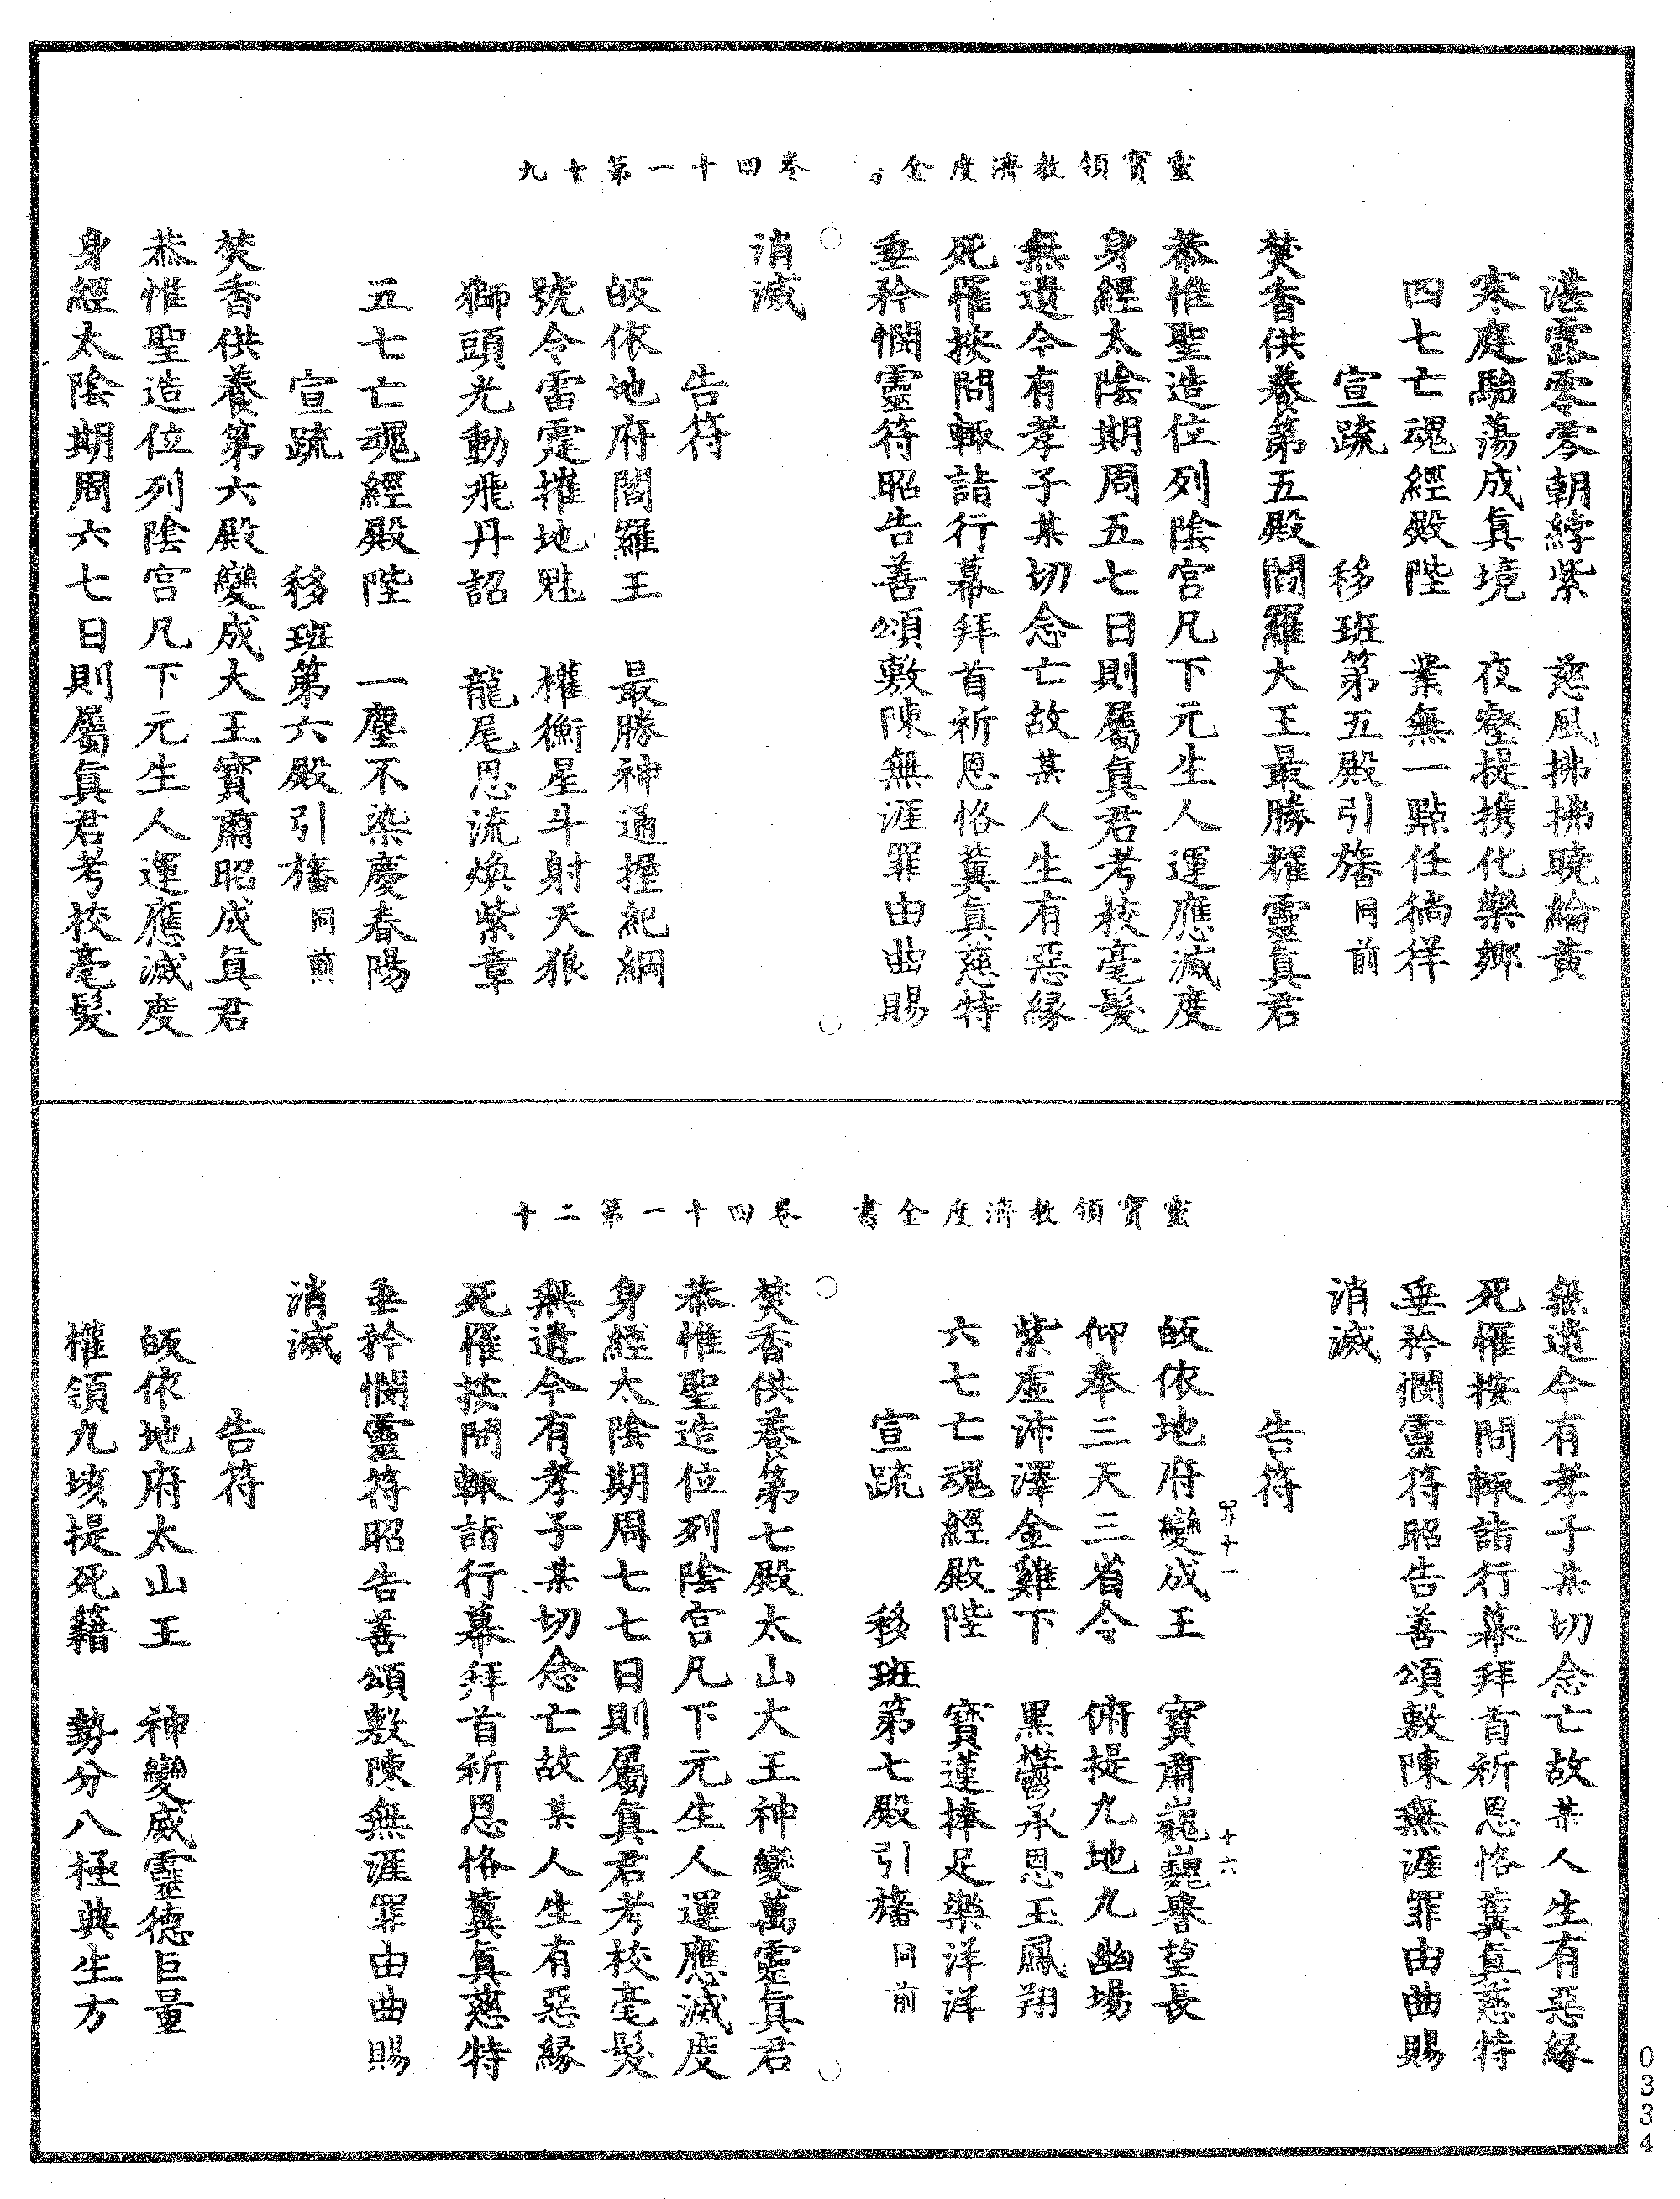 靈寶領教濟度金 卷四十一第十九
湛露零零朝綍紫 慈風拂拂曉綸黃
寒庭駘蕩成眞境 夜壑提携化樂鄉
四七亡魂經殿陛 業無一點任徜徉
宣䟽 移班第五殿引旛同前
焚香供養第五殿閻羅大王最勝耀靈眞君
恭惟聖造位列陰宮凡下元生人運應滅度
身經太陰期周五七日則屬眞君考校毫髮
無遺今有孝子某切念亡故某人生有惡緣
死罹按問輙詣行幕拜首祈恩恪冀眞慈特
垂矜憫靈符昭告善頌敷陳無涯罪由曲賜
消滅
告符
皈依地府閻羅王 最勝神通握紀綱
號令雷霆摧地魁 權衡星斗射天狼
獅頭光動飛丹詔 龍尾恩流煥紫章
五七亡魂經殿陛 一塵不染慶春陽
宣䟽 移班第六殿引旛同前
焚香供養第六殿變成大王寶肅昭成眞君
恭惟聖造位列陰宮凡下元生人運應滅度
身經太陰期周六七日則屬眞君考校毫髮
靈寶領教濟度金書 卷四十一第二十
無遺今有孝子某切念亡故某人生有惡緣
死罹按問輙詣行幕拜首祈恩恪冀眞慈特
垂矜憫靈符昭告善頌敷陳無涯罪由曲賜
消滅
告符
十一 十六
皈依地府變成王 寶肅巍巍譽望長
仰奉三天三省令 俯提九地九幽場
紫虛沛澤金雞下 黑鬱承恩玉鳳翔
六七亡魂經殿陛 寶蓮捧足樂洋洋
宣䟽 移班第七殿引旛同前
焚香供養第七殿太山大王神變萬靈眞君
恭惟聖造位列陰宮凡下元生人運應滅度
身經太陰期周七七日則屬眞君考校毫髮
無遺今有孝子某切念亡故某人生有惡緣
死罹按問輙詣行幕拜首祈恩恪冀眞慈特
垂矜憫靈符昭告善頌敷陳無涯罪由曲賜
消滅
告符
皈依地府太山王 神變威靈德巨量
權領九垓提死藉 勢分八極典生方
0334